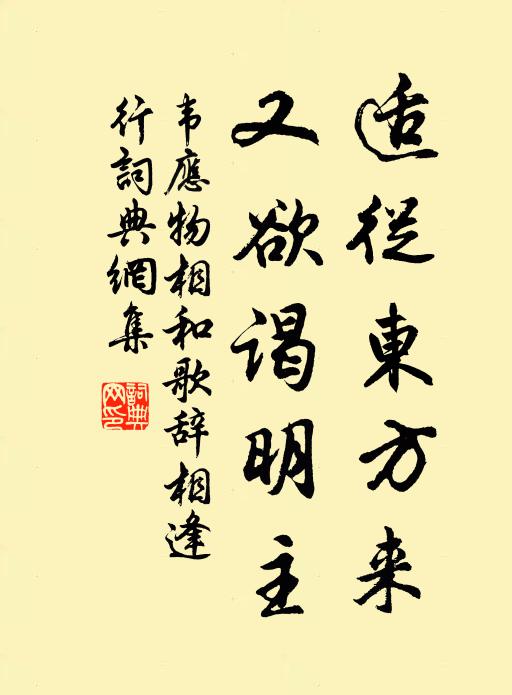 适從東方来
又欲谒明主
韦應物相和歌辞相逢
行詞典網集
詞典网印